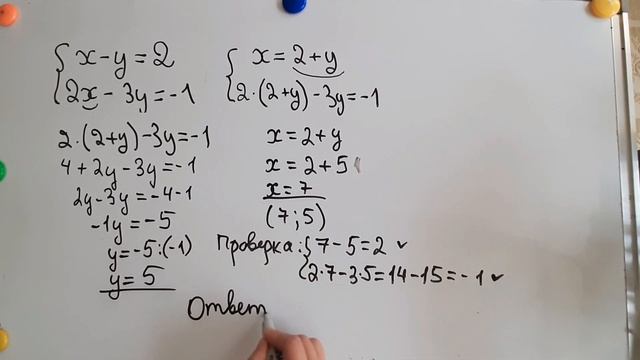 x - y = 2
2x - 3y = -1
x = 2 + y
2 · (2+y) - 3y = -1
2 · (2+y) - 3y = -1
4 + 2y - 3y = -1
2y - 3y = -4 - 1
-1y = -5
y = -5 : (-1)
y = 5
x = 2 + y
x = 2 + 5
x = 7
(7; 5)
Проверка: 7 - 5 = 2 ✓
2 · 7 - 3 · 5 = 14 - 15 = -1 ✓
Ответ